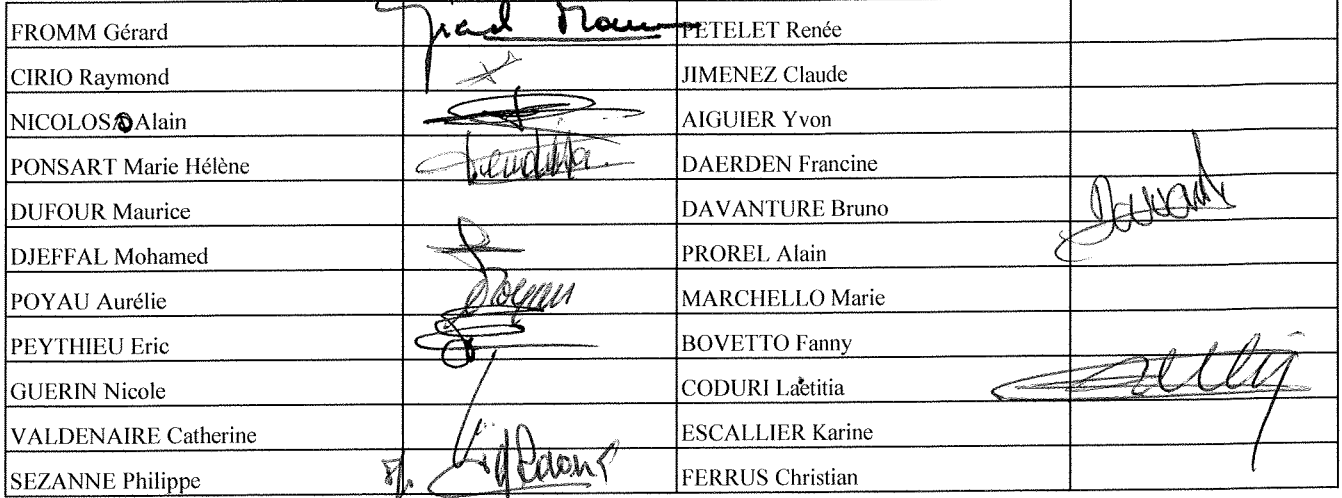 FROMM Gérard
PETELET Renée
CIRIO Raymond
JIMENEZ Claude
NICOLOSO Alain
AIGUIER Yvon
PONSART Marie Hélène
DAERDEN Francine
DUFOUR Maurice
DAVANTURE Bruno
DJEFFAL Mohamed
PROREL Alain
POYAU Aurélie
Poyau
MARCHELLO Marie
PEYTHIEU Eric
BOVETTO Fanny
GUERIN Nicole
CODURI Laetitia
VALDENAIRE Catherine
ESCALLIER Karine
SEZANNE Philippe
FERRUS Christian